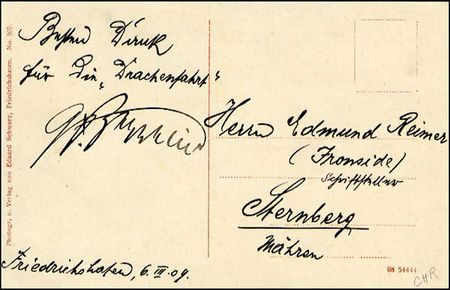 Besten Dank
für die „Drachenfahrt"
Gf. Zeppelin
Friedrichshafen, 6. III. 09.
Herrn Edmund Reimer
(Fronside)
Schriftsteller
Sternberg
Mähren
Photogr. u. Verlag von Eduard Schwarz, Friedrichshafen. No. 507.
08 54444
CHR